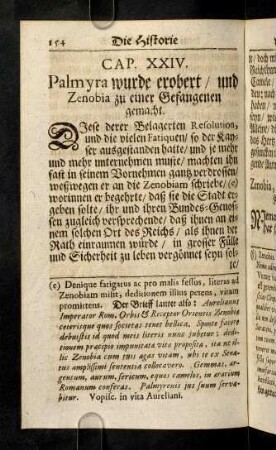 154 Die Historie
CAP. XXIV.
Palmyra wurde erobert / und
Zenobia zu einer Gefangenen
gemacht.
Diese derer Belagerten Resolution,
und die vielen Fatiquen / so der Kay-
ser ausgestanden hatte / und je mehr
und mehr unternehmen muste / machten ihn
fast in seinem Vornehmen gantz verdrossen /
weßwegen er an die Zenobiam schriebe / (e)
worinnen er begehrte / daß sie die Stadt er-
geben solte / ihr und ihren Bunds-Genos-
sen zugleich versprechende / daß ihnen an ei-
nem solchen Ort des Reichs / als ihnen der
Rath einraumen würde / in grosser Fülle
und Sicherheit zu leben vergönnet seyn sol-
te /
(e) Denique fatigatus ac pro malis fessus, literas ad
Zenobiam misit, deditionem illius petens, vitam
promittens. Der Brieff lautet also: Aurelianus
Imperator Rom. Orbis & Receptor Orientis Zenobiæ
ceterisque quos societas tenet bellica. Sponte facere
debuistis id quod meis literis nunc jubetur: dedi-
tionem præcipio impunitate vitæ proposita, ita ut il-
lic Zenobia cum tuis agas vitam, ubi te ex Sena-
tus amplissimi sententia collocavero. Gemmas, ar-
gentum, aurum, sericum, equos camelos, in ærarium
Romanum conferas. Palmyrenis jus suum serva-
bitur. Vopisc. in vita Aureliani.